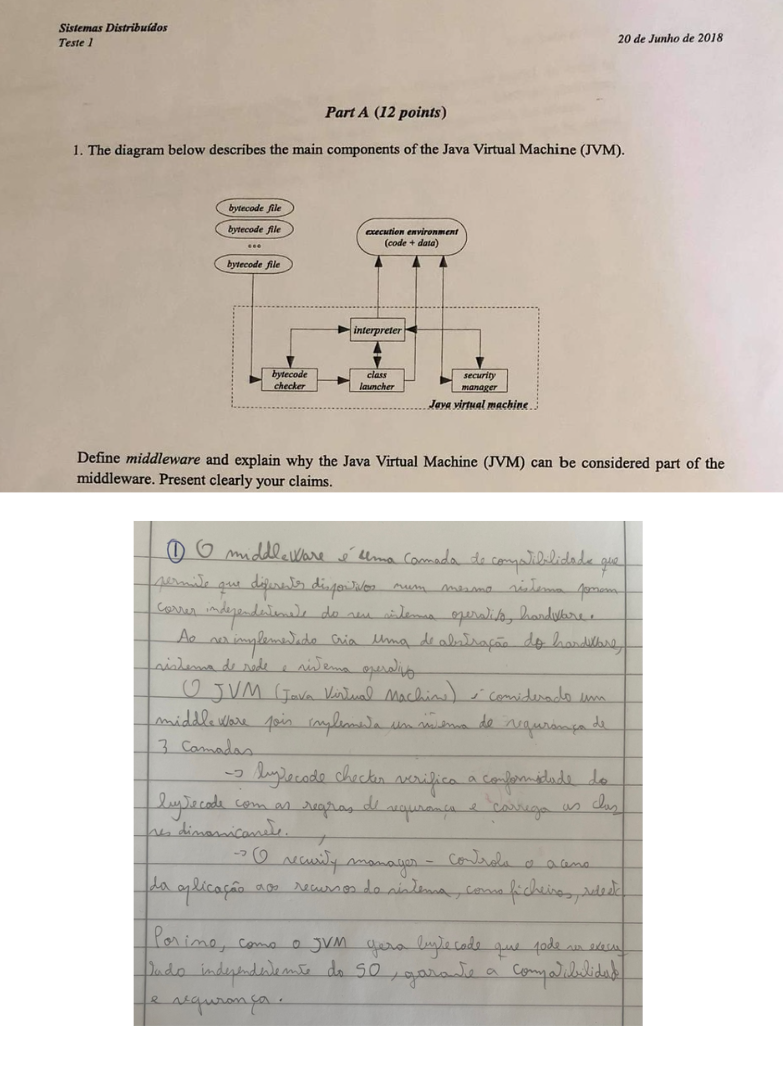 Sistemas Distribuídos
Teste 1
20 de Junho de 2018
Part A (12 points)
1. The diagram below describes the main components of the Java Virtual Machine (JVM).
bytecode file
bytecode file
...
bytecode file
execution environment
(code + data)
interpreter
bytecode
checker
class
launcher
security
manager
Java virtual machine
Define middleware and explain why the Java Virtual Machine (JVM) can be considered part of the
middleware. Present clearly your claims.
① O middleware é uma camada de compatibilidade que
permite que diferentes dispositivos num mesmo sistema possam
correr independentemente do seu sistema operativo, hardware.
Ao ser implementado cria uma de abstração do hardware,
sistema de rede e sistema operativo
O JVM (Java Virtual Machine) é considerado um
middleware pois implementa um sistema de segurança de
3 camadas
-> bytecode checker verifica a conformidade do
bytecode com as regras de segurança e carrega as clas
ses dinamicamente.
-> O security manager - controla o acesso
da aplicação aos recursos do sistema, como ficheiros, rede etc
Por isso, como o JVM gera bytecode que pode ser execu
tado independentemente do SO, garante a compatibilidade
e segurança.